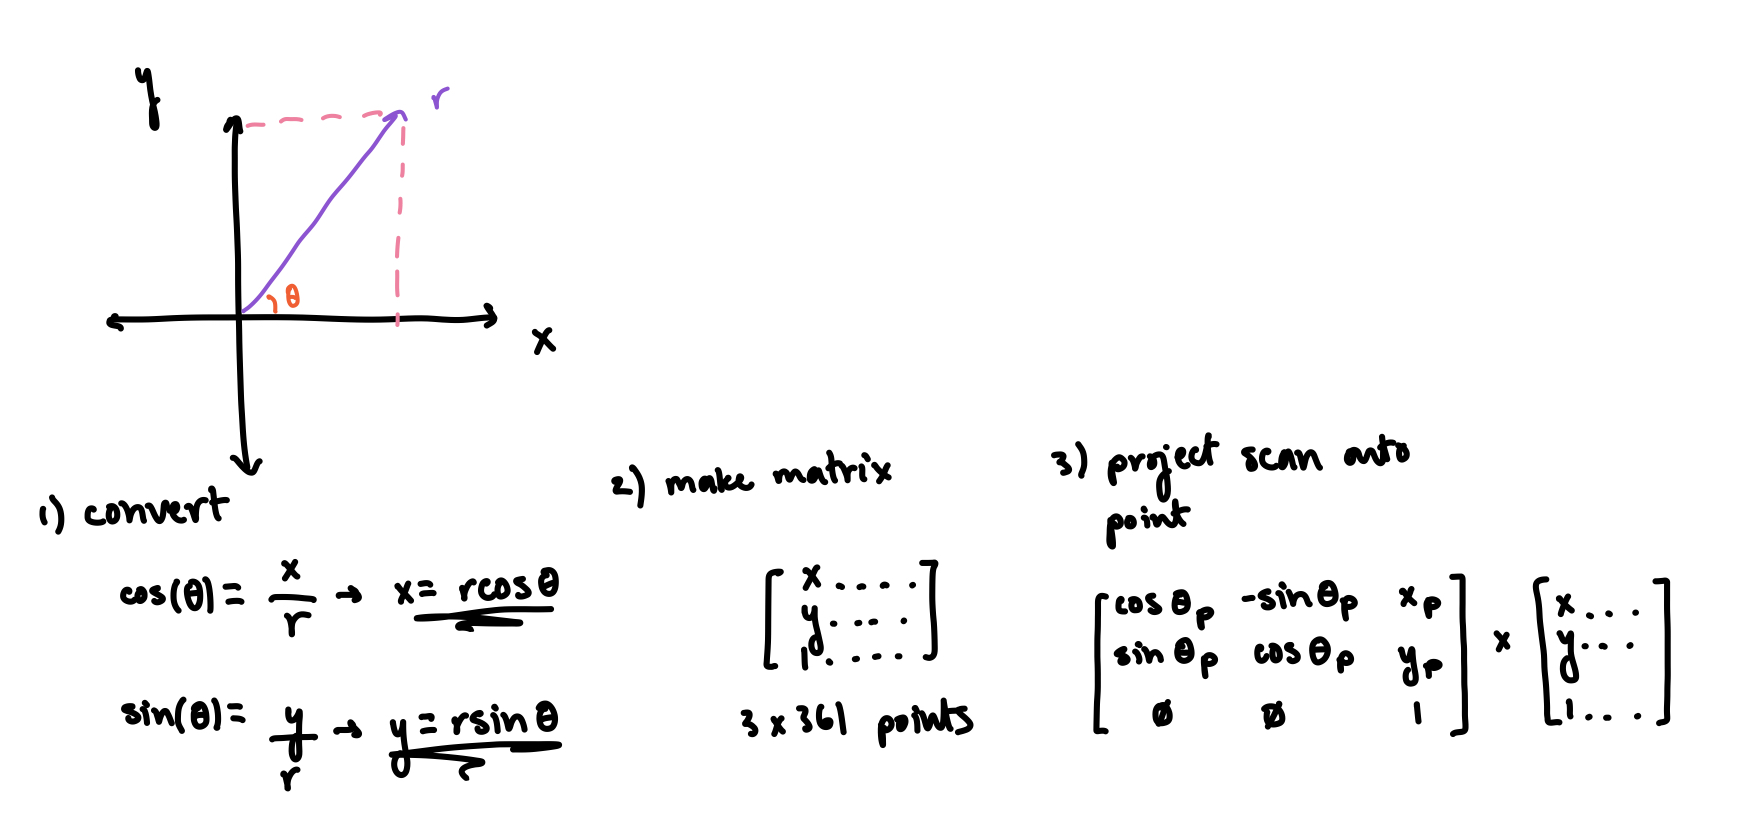 y
r
θ
x
1) convert
cos(θ) = x/r → x = rcosθ
sin(θ) = y/r → y = rsinθ
2) make matrix
[x . . . .
y . . . .
1 . . . .]
3 x 361 points
3) project scan onto
point
[cosθp -sinθp xp
sinθp cosθp yp
0 0 1] x [x . . .
y . . .
1 . . .]